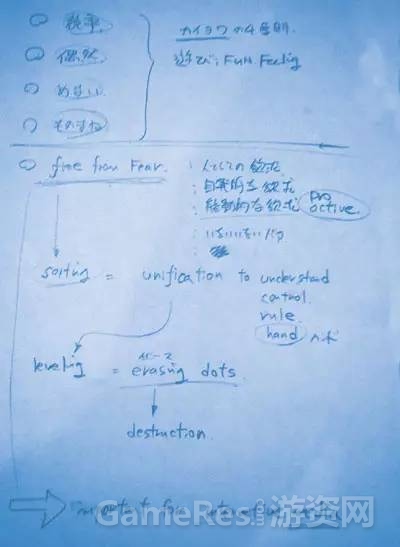 ○ 競争.
カイヨワの4要明.
○ 偶然.
遊び; FUN. Feeling
○ めまい.
○ ものまね
○ free from Fear. : 人としての欲求.
: 自我的な欲求
: 能動的な欲求 pro active.
: いないいないバァ
sorting = unification to understand
control.
rule.
hand
leveling = erasing dots.
destruction.
important
GameRes.com游资网